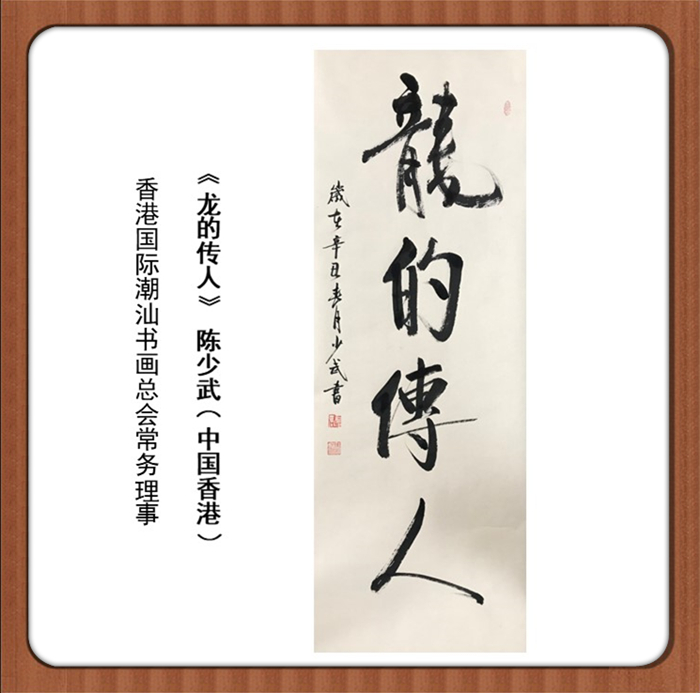 龍的傳人
歲在辛丑春月少武書
《龙的传人》 陈少武（中国香港）
香港国际潮汕书画总会常务理事